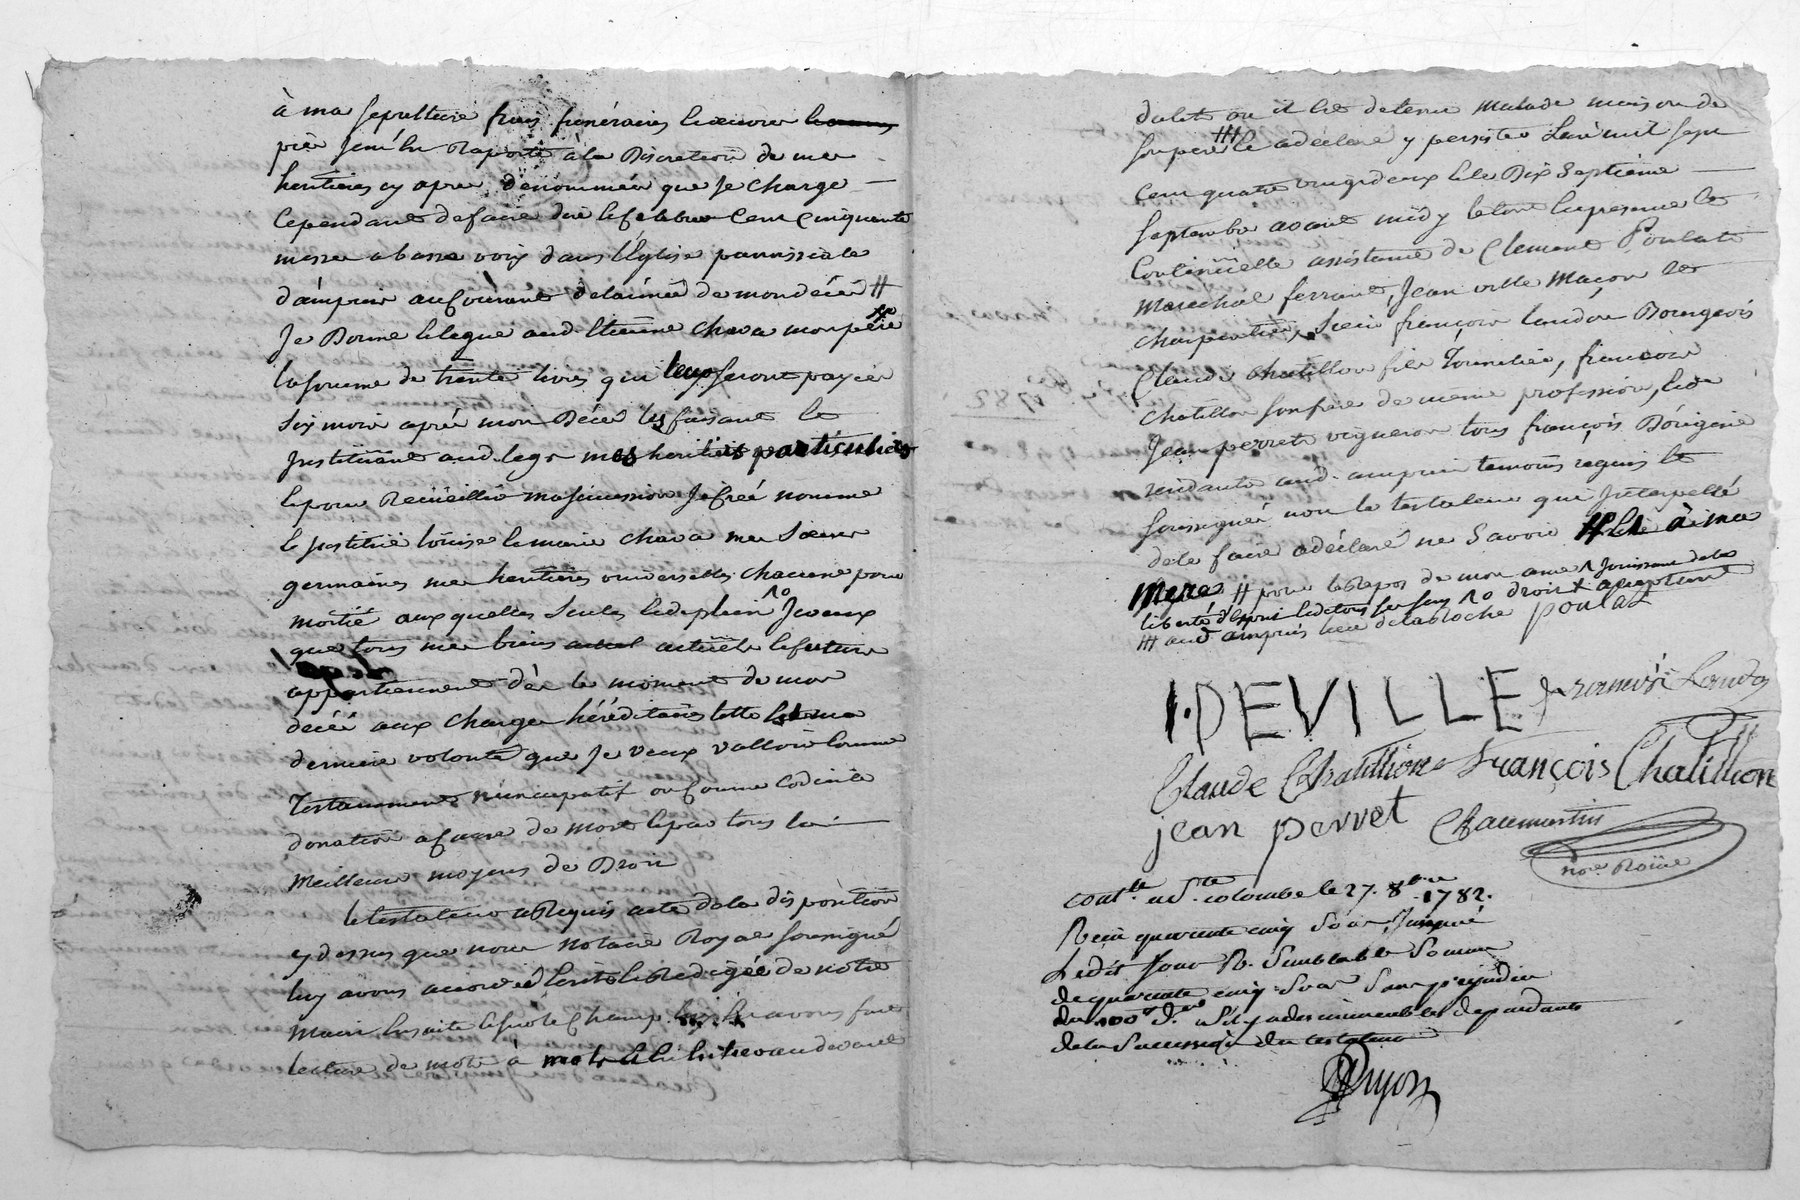 à ma sepulture frais funéraires
à la Discretion de mes
heritieres cy apres denommées que je charge
cependant de faire dire cent cinquante
messes a basse voix dans l'Eglise parroissiale
d'ampuis au courant de l'année de mon décés #
Je Donne & legue aud. Etienne Chava mon pere
la somme de trente livres qui leurs seront payés
six mois aprés mon Décés les faisant &
instituant aud. legs mes heritiers particuliers
& pour Recüeillir ma succession j'ai créé nommé
& institué loüise & marie Chava mes Sœurs
germaines mes heritieres universelles chacune pour
moitié auxquelles seules & de plein Jo Je veux
que tous mes biens actuels & futurs
appartiennent dés le moment de mon
décéé aux charges héréditaires telle est ma
derniere volonté que je veux valloir comme
Testament nuncupatif ou comme codicile
donation a cause de mort & par tous les
meilleurs moyens de Droit
le testateur a Requis acte de la disposition
cy dessus que nous notaire Royal soussigné
luy avons accordé & redigée de notre
main de suite & sur le champ & luy avons fait
lecture de mot à mot & au devant
du lit ou il est detenu malade maison de
son pere ### & a déclaré y persister l'an mil sept
cent quatre vingt deux & le Dix Septieme
septembre avant midy le tout en presence &
continüelle assistance de Clement Poulat
marechal ferrant, Jean ville maçon &
charpentier, Sieur françois landon Bourgeois
Claude chatillon fils Tonnelier, francois
chatillon son frere de meme profession, & de
Jean perret vigneron tous françois d'origine
rendants aud. ampuis temoins requis &
soussignés non le testateur qui Interpellé
de le faire a déclaré ne Scavoir # & à ma
mere # pour le Repos de mon ame & Jouissant de la
liberté d'esprit & de tous ses sens Jo droit & acceptant
### aud. ampuis lieu de la roche poulat
I·DEVILLE francois Landon
Claude Chatillion François Chatillion
jean perret Chaumartin
nore Roïial
Contlle. a Ste. colombe le 27. 8bre 1782.
Reçu quarante cinq sous Insinué
ledit jour R. Semblable Somme
de quarante cinq Sous Sans prejudice
du 100e. d.er s'il y a des immeubles dependants
de la Succession du testateur
Guyon